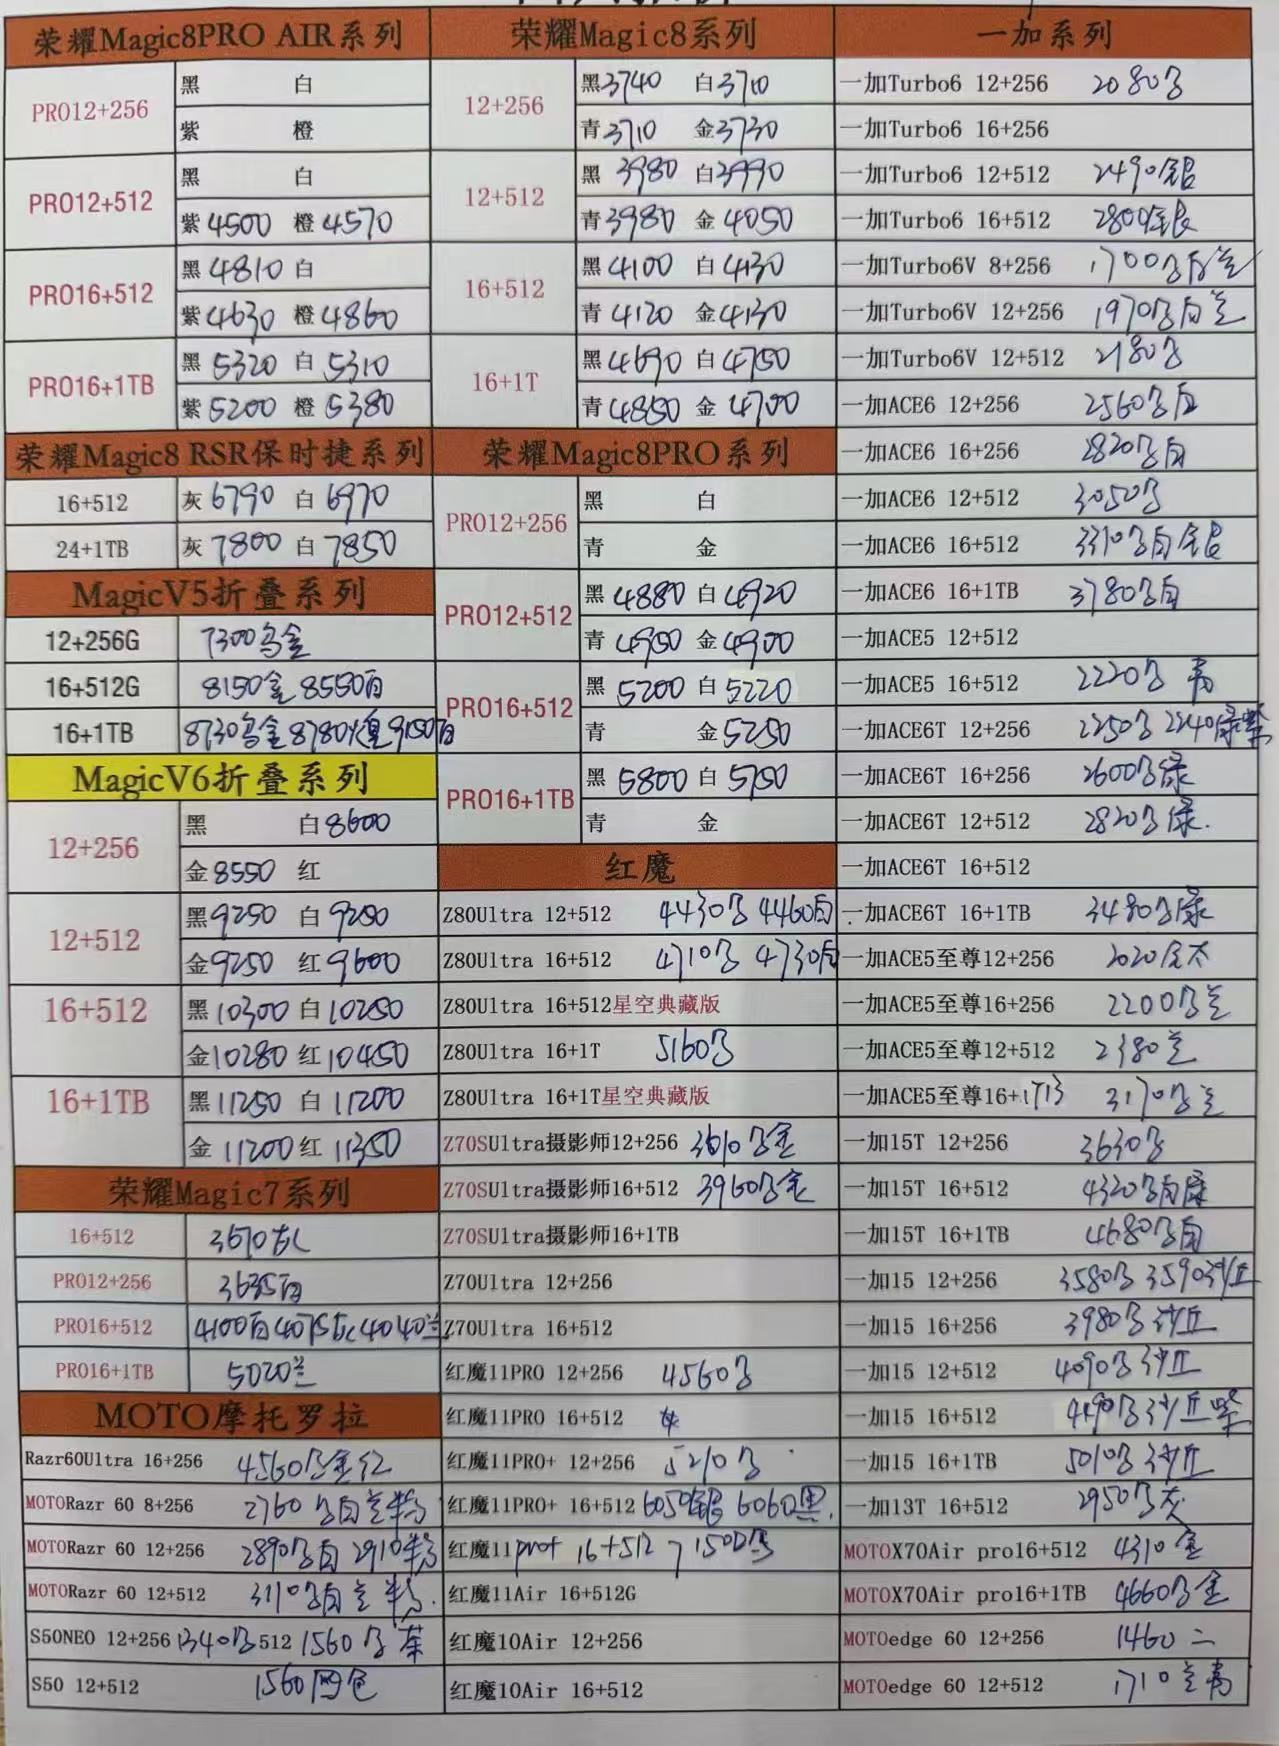 荣耀Magic8PRO AIR系列
PRO12+256
黑 白
紫 橙
PRO12+512
黑 白
紫4500 橙4570
PRO16+512
黑4810 白
紫4630 橙4860
PRO16+1TB
黑5320 白5310
紫5200 橙5380
荣耀Magic8 RSR保时捷系列
16+512 灰6790 白6970
24+1TB 灰7800 白7850
MagicV5折叠系列
12+256G 7300乌金
16+512G 8150金 8550白
16+1TB 8730乌金 8780 9150白
MagicV6折叠系列
12+256
黑 白8600
金8550 红
12+512
黑9250 白9250
金9250 红9600
16+512
黑10300 白10250
金10280 红10450
16+1TB
黑11250 白11200
金11200 红11350
荣耀Magic7系列
16+512 3670灰
PRO12+256 3635白
PRO16+512 4100白 4075灰 4040兰
PRO16+1TB 5020兰
MOTO摩托罗拉
Razr60Ultra 16+256 4560 金红
MOTORazr 60 8+256 2760 白兰粉
MOTORazr 60 12+256 2890 白 2910粉
MOTORazr 60 12+512 3110 白兰粉
S50NEO 12+256 1340 512 1560 茶
S50 12+512 1560 色
荣耀Magic8系列
12+256
黑3740 白3710
青3710 金3730
12+512
黑3980 白3990
青3980 金4050
16+512
黑4100 白4130
青4120 金4130
16+1T
黑4690 白4750
青4850 金4700
荣耀Magic8PRO系列
PRO12+256
黑 白
青 金
PRO12+512
黑4880 白4920
青4950 金4900
PRO16+512
黑5200 白5220
青 金5250
PRO16+1TB
黑5800 白5750
青 金
红魔
Z80Ultra 12+512 4430 4460白
Z80Ultra 16+512 4710 4730白
Z80Ultra 16+512星空典藏版
Z80Ultra 16+1T 5160
Z80Ultra 16+1T星空典藏版
Z70SUltra摄影师12+256 3610 金
Z70SUltra摄影师16+512 3960
Z70SUltra摄影师16+1TB
Z70Ultra 12+256
Z70Ultra 16+512
红魔11PRO 12+256 4560
红魔11PRO 16+512
红魔11PRO+ 12+256 5210
红魔11PRO+ 16+512 6050银 6060黑
红魔11pro+ 16+512 7150
红魔11Air 16+512G
红魔10Air 12+256
红魔10Air 16+512
一加系列
一加Turbo6 12+256 2080
一加Turbo6 16+256
一加Turbo6 12+512 2490银
一加Turbo6 16+512 2800银
一加Turbo6V 8+256 1700 白兰
一加Turbo6V 12+256 1970 白兰
一加Turbo6V 12+512 2180
一加ACE6 12+256 2560 白
一加ACE6 16+256 2820 白
一加ACE6 12+512 3050
一加ACE6 16+512 3310 白银
一加ACE6 16+1TB 3780 白
一加ACE5 12+512
一加ACE5 16+512 2220 青
一加ACE6T 12+256 2250 2240绿紫
一加ACE6T 16+256 2600 绿
一加ACE6T 12+512 2820 绿
一加ACE6T 16+512
一加ACE6T 16+1TB 3480 绿
一加ACE5至尊12+256 2020
一加ACE5至尊16+256 2200 兰
一加ACE5至尊12+512 2380兰
一加ACE5至尊16+1TB 3170 兰
一加15T 12+256 3630
一加15T 16+512 4320 白绿
一加15T 16+1TB 4680 白
一加15 12+256 3580 3590沙丘
一加15 16+256 3980 沙丘
一加15 12+512 4090 沙丘
一加15 16+512 4490 沙丘紫
一加15 16+1TB 5010 沙丘
一加13T 16+512 2950 灰
MOTOX70Air pro16+512 4310金
MOTOX70Air pro16+1TB 4660 金
MOTOedge 60 12+256 1460
MOTOedge 60 12+512 1710兰青